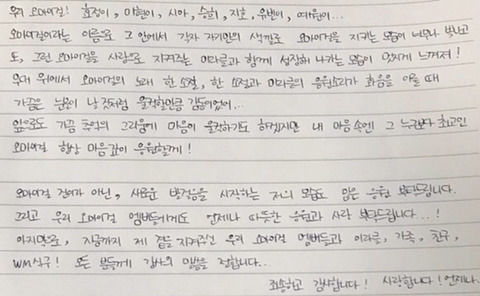 우리 오마이걸! 효정이, 미현이, 시아, 승희, 지호, 유빈이, 여원이...
오마이걸이라는 이름으로 그 안에서 각자 자기만의 색깔로 오마이걸을 지키는 모습이 너무나 벅차고
도, 그런 오마이걸을 사랑으로 지켜주는 미라클과 함께 성장해 나가는 모습이 멋지게 느껴져!
무대 위에서 오마이걸의 노래 한 소절, 한 소절과 미라클의 응원소리가 화음을 이룰 때
가끔은 눈물이 날 것처럼 울컥할만큼 감동이었어...
앞으로도 가끔 추억의 그리움에 마음이 울컥하기도 하겠지만 내 마음속엔 그 누구보다 최고인
오마이걸 항상 마음 깊이 응원할게!
오마이걸 진이가 아닌, 새로운 발걸음을 시작하는 저의 모습도 많은 응원 부탁드립니다.
그리고 우리 오마이걸 멤버들에게도 언제나 따뜻한 응원과 사랑 부탁드립니다...!
마지막으로, 지금까지 제 곁을 지켜주신 우리 오마이걸 멤버들과 미라클, 가족, 친구,
WM식구! 모든 분들께 감사의 말씀을 전합니다...
죄송하고 감사합니다! 사랑합니다! 언제나.